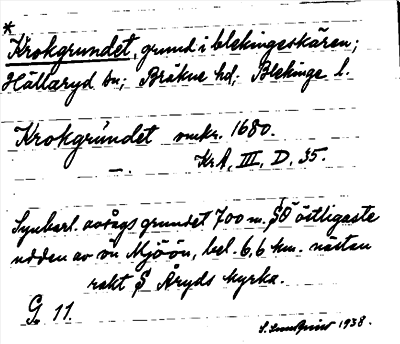 *
Krokgrundet, grund i blekingeskären;
Hällaryd sn; Bräkne hd; Blekinge l.
Krokgrundet omkr. 1680.
—. KrA, III, D, 35.
Synbarl. avsågs grundet 700 m. SÖ östligaste
udden av ön Mjöön, bel. 6,6 km. nästan
rakt S Åryds kyrka.
G. 11.
1938.